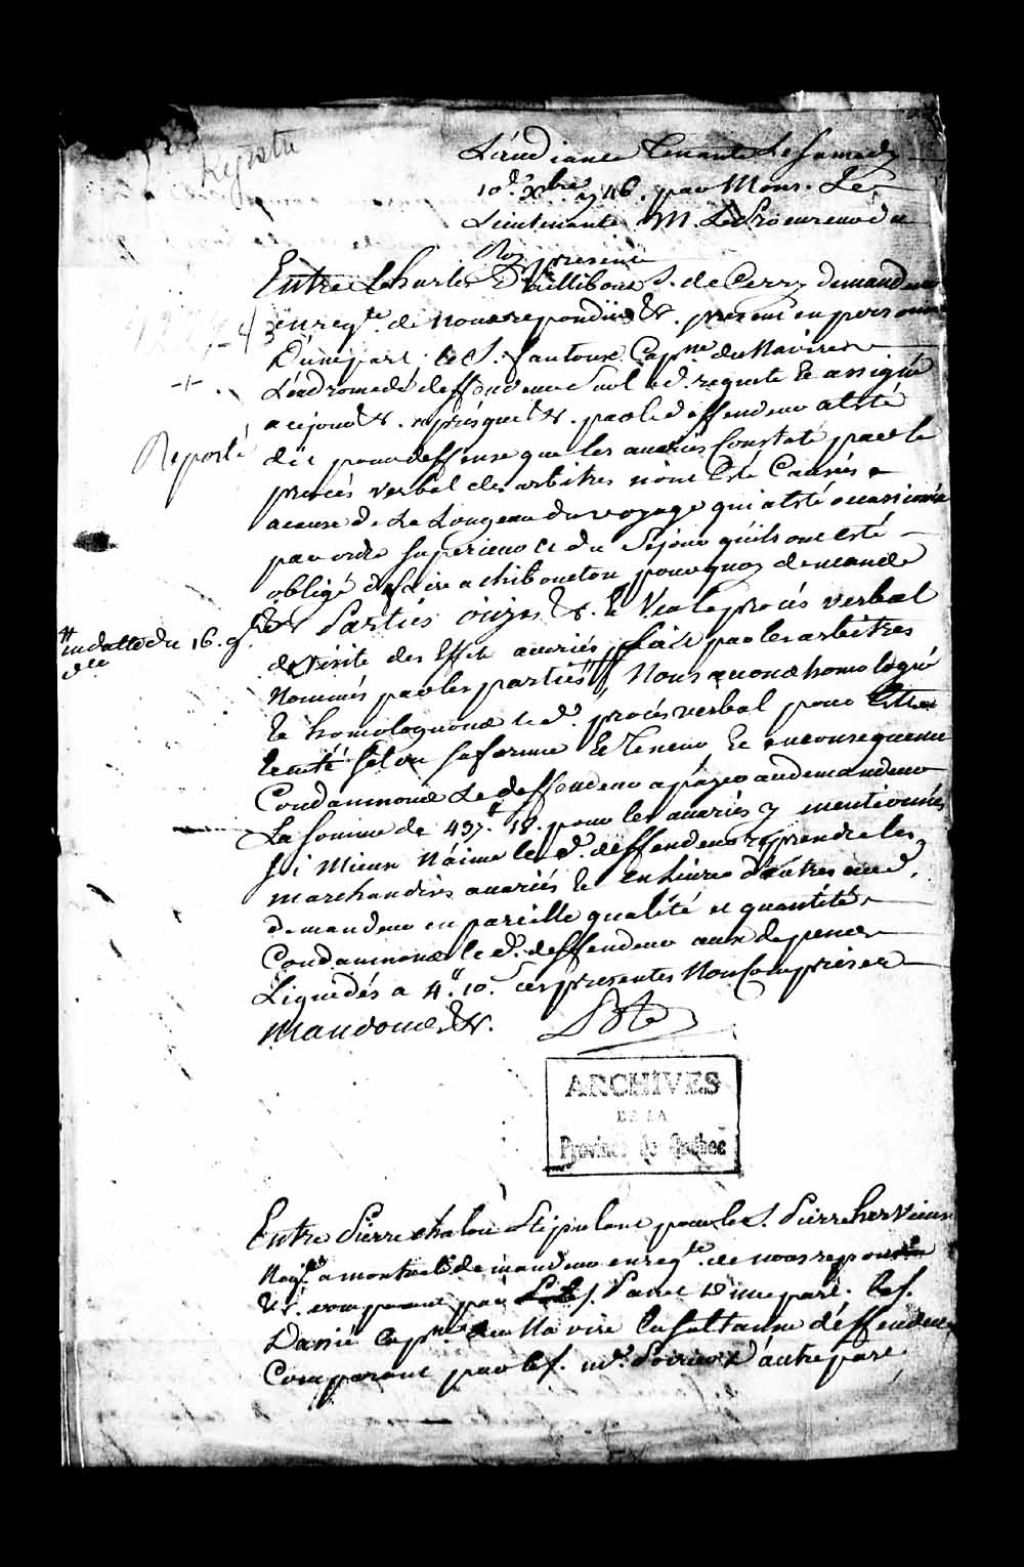 Registre
L'audiance Tenante Le Samedy
10e Xbre 1746. par Mons. Le
Lieutenant M. Le Procureur du
Roy present
Entre Charles D'aillibout S. de Cerry demandeur
en reqte. de nous repondüe &c. present en personne
D'une part. Le S. fautoux Capne du Navire
L'andromede deffendeur Sur lad. requete Et assigné
a ce jour &c. aprés que &c. par le deffendeur a eté
Reporté
dit pour deffense que les avaries Constaté par le
procés verbal des arbitres n'ont Eté Causés
a cause de La Longeur du voyage qui a eté occasionné
par ordre Superieur et du Sejour qu'ils ont eté
obligé de faire a chiboucton pourquoy demande
&c Parties ouÿes &c. & Vu le procés verbal
# en datte du 16. 9bre
dle
de visite des Effets avariés fait par les arbitres
Nommés par les parties # Nous avons homologué
Et homologuons le d. procés verbal pour Etre
Executé Selon Sa forme Et Teneur, Et en consequence
Condamnons Le deffendeur a payer au demandeur
La Somme de 437.# 18. pour les avaries y mentionnés
Si Mieux N'aime le d. deffendeur reprendre les
marchandises avariés Et en livrer d'autres aud.
demandeur en pareille qualité et quantité
Condamnons le d. deffendeur aux depens
Liquidés a 4.# 10. Ces presentes Non Comprises
Mandons &c.
ARCHIVES
DE LA
Province de Québec
Entre Pierre chalou Stipulant pour le S. Pierre hervieux
Negt a montreal demandeur en reqte. de nous repondüe
&c. comparant par Le S. Panet D'une part. Le S.
Danié Capne du Navire La Sultanne deffendeur
Comparant par le S. Poirieux D'autre part,